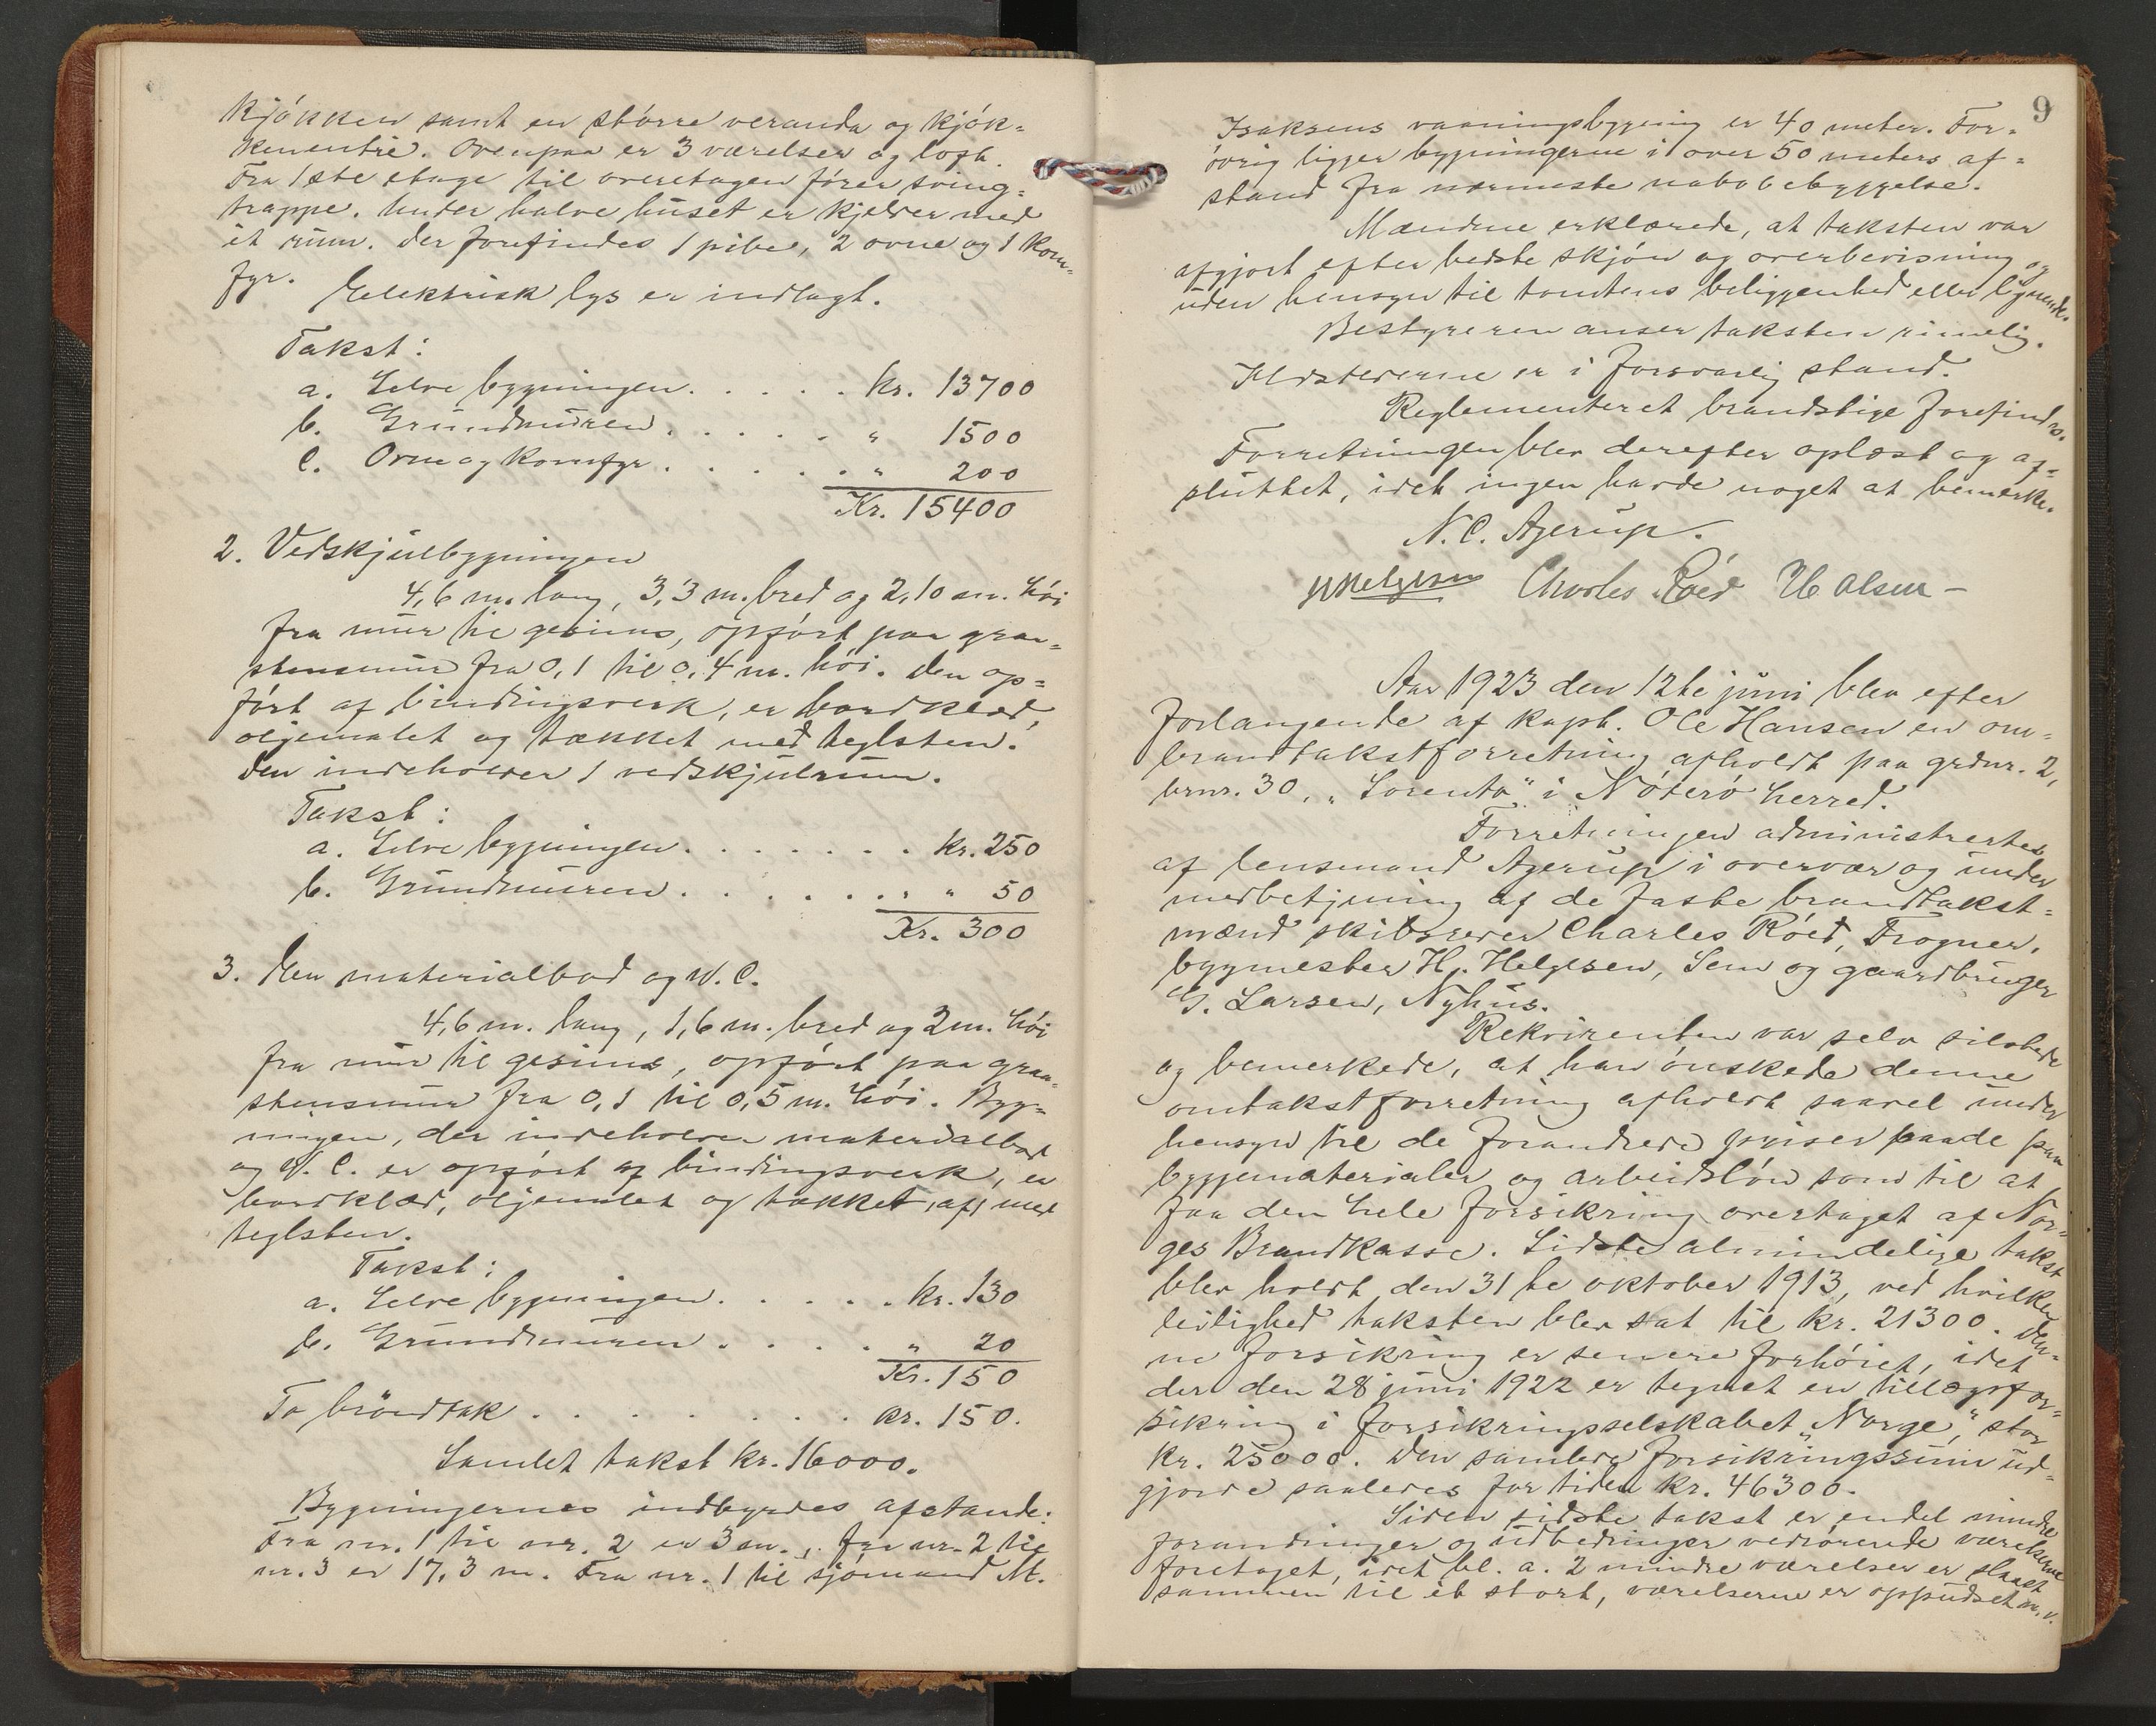 kjøkken samt en større veranda og kjøk=
kenentré. Ovenpaa er 3 værelser og loft.
Fra 1ste etage til overetagen fører sving=
trappe. Under halve huset er kjelder med
et rum. Der forefindes 1 pibe, 2 ovne og 1 kom=
fyr.
Elektrisk lys er indlagt.
Takst:
a. Selve bygningen. . . . . kr. 13700
b. Grundmuren. . . . . . " 1500
c. Ovne og komfyr. . . . . . " 200
Kr. 15400
2. Vedskjulbygningen
4,6 m. lang, 3,3 m. bred og 2,10 m. høi
fra mur til gesims, opført paa graa=
stensmur fra 0,1 til 0,4 m. høi. Den op=
ført af bindingsverk, er bordklæd,
oljemalet og tækket med teglsten.
Den indeholder 1 vedskjulrum.
Takst:
a. Selve bygningen. . . . . . . kr. 250
b. Grundmuren. . . . . . . " 50
Kr. 300
3. Den materialbod og W.C.
4,6 m. lang, 1,6 m. bred og 2 m. høi
fra mur til gesims, opført paa graa=
stensmur fra 0,1 til 0,5 m. høi. Byg=
ningen, der indeholder materialbod
og W.C. er opført af bindingsverk, er
bordklæd, oljemalet og tækket, af, med
teglsten.
Takst:
a. Selve bygningen. . . . . kr. 130
b. Grundmuren. . . . . " 20
Kr. 150
To brøndtak. . . . . . . . kr. 150.
Samlet takst kr. 16000.
Bygningernes indbyrdes afstande:
Fra nr. 1 til nr. 2 er 3 m., fra nr. 2 til
nr. 3 er 17,3 m. Fra nr. 1 til sjømand M.
9
Isaksens vaaningsbygning er 40 meter. For=
øvrig ligger bygningerne i over 50 meters af=
stand fra nærmeste nabobebyggelse.
Mændene erklærede, at taksten var
afgjort efter bedste skjøn og overbevisning og
uden hensyn til tomtens beliggenhed eller lignende.
Bestyreren anser taksten rimelig.
Ildstederne er i forsvarlig stand.
Reglementeret brandstige forefindes.
Forretningen blev derefter oplæst og af=
sluttet, idet ingen havde noget at bemerke.
N. C. Agerup.
HHelgesen Charles Röed H Olsen -
Aar 1923 den 12te juni blev efter
forlangende af kapt. Ole Hansen en om=
brandtakstforretning afholdt paa grdnr. 2,
brnr. 30, "Sorento" i Nøterø herred.
Forretningen administrertes
af lensmand Agerup i overvær og under
medbetjening af de faste brandtakst=
mænd skibsreder Charles Röed, Frogner,
bygmester Hj. Helgesen, Sem og gaardbruger
G. Larsen, Nyhus.
Rekvirenten var selv tilstede
og bemerkede, at han ønskede denne
omtakstforretning afholdt saavel under
hensyn til de forandrede priser baade paa
byggematerialer og arbeidsløn som til at
faa den hele forsikring overtaget af Nor=
ges Brandkasse. Sidste almindelige takst
blev holdt den 31te oktober 1913, ved hvilken
leilighed taksten blev sat til kr. 21300. Den=
ne forsikring er senere forhøiet, idet
der den 28 juni 1922 er tegnet en tillægsfor=
sikring i forsikringsselskabet "Norge", stor
kr. 25000. Den samlede forsikringssum ud=
gjorde saaledes for tiden kr. 46300.
Siden sidste takst er endel mindre
forandringer og udbedringer vedrørende værelserne
foretaget, idet bl. a. 2 mindre værelser er slaaet
sammen til et stort, værelserne er oppudset m. v.